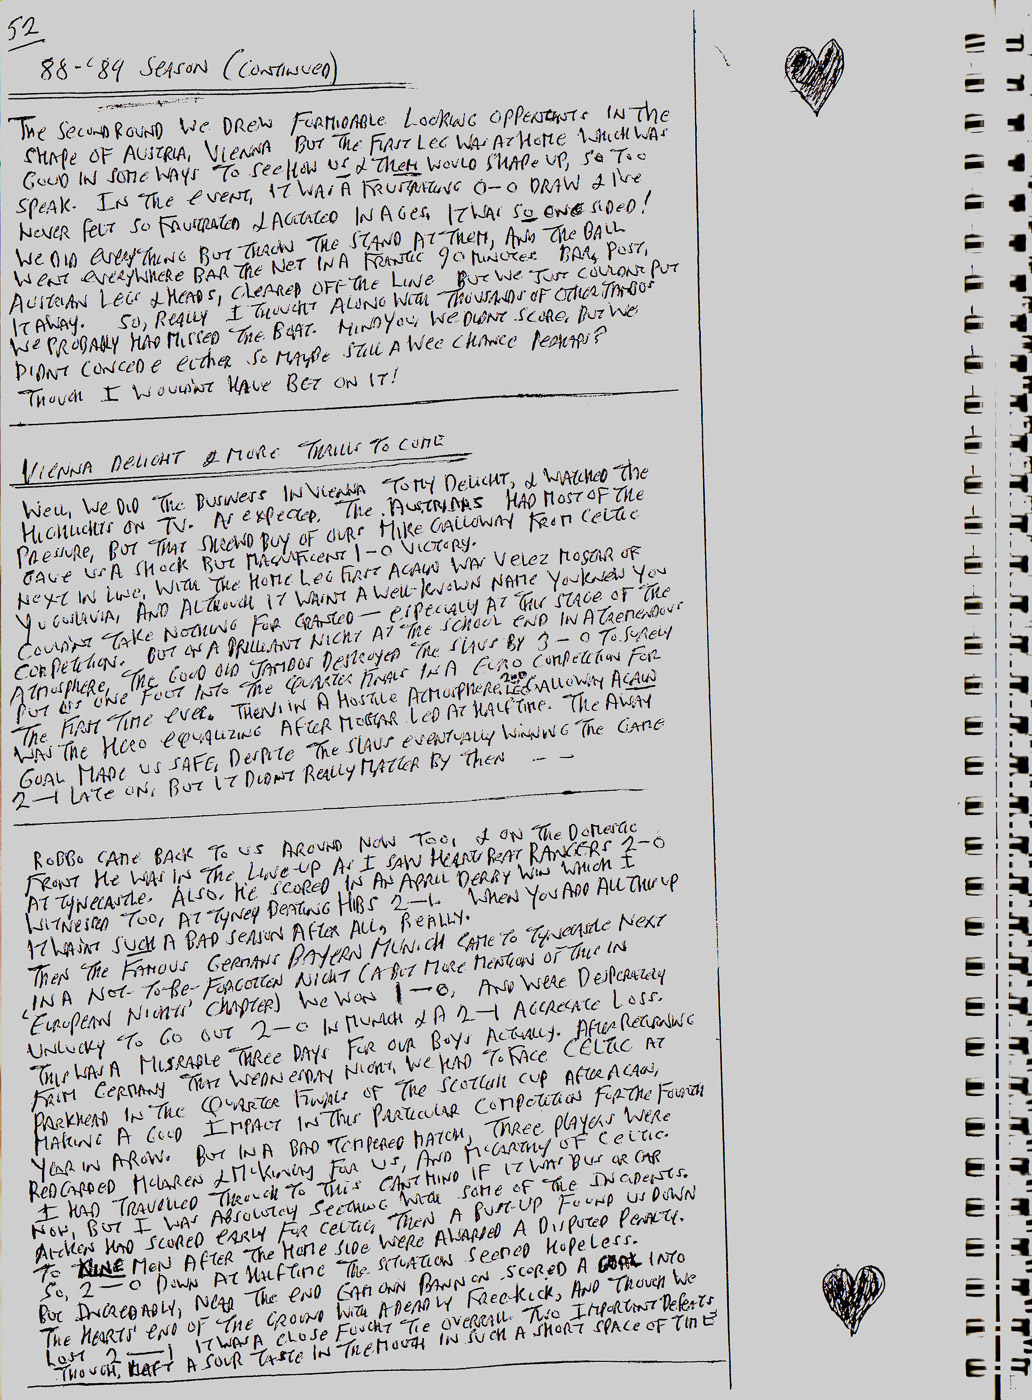 52
88-'89 SEASON (CONTINUED)
THE SECOND ROUND WE DREW FORMIDABLE LOOKING OPPENENTS IN THE
SHAPE OF AUSTRIA, VIENNA BUT THE FIRST LEG WAS AT HOME WHICH WAS
GOOD IN SOME WAYS TO SEE HOW US & THEM WOULD SHAPE UP, SO TOO
SPEAK. IN THE EVENT, IT WAS A FRUSTRATING 0-0 DRAW & I'VE
NEVER FELT SO FRUSTRATED & AGITATED IN AGES. IT WAS SO ONE SIDED!
WE DID EVERYTHING BUT THROW THE STAND AT THEM, AND THE BALL
WENT EVERYWHERE BAR THE NET IN A FRANTIC 90 MINUTES. BAR, POST,
AUSTRIAN LEGS & HEADS, CLEARED OFF THE LINE BUT WE JUST COULDN'T PUT
IT AWAY. SO, REALLY I THOUGHT ALONG WITH THOUSANDS OF OTHER JAMBOS
WE PROBABLY HAD MISSED THE BOAT. MIND YOU, WE DIDNT SCORE, BUT WE
DIDNT CONCEDE EITHER SO MAYBE STILL A WEE CHANCE PERHAPS?
THOUGH I WOULDN'T HAVE BET ON IT!
VIENNA DELIGHT & MORE THRILLS TO COME
WELL, WE DID THE BUSINESS IN VIENNA TO MY DELIGHT, & WATCHED THE
HIGHLIGHTS ON TV. AS EXPECTED, THE AUSTRIANS HAD MOST OF THE
PRESSURE, BUT THAT SHREWD BUY OF OURS MIKE GALLOWAY FROM CELTIC
GAVE US A SHOCK BUT MAGNIFICENT 1-0 VICTORY.
NEXT IN LINE, WITH THE HOME LEG FIRST AGAIN WAS VELEZ MOSTAR OF
YUGOSLAVIA, AND ALTHOUGH IT WASNT A WELL-KNOWN NAME YOU KNEW YOU
COULDN'T TAKE NOTHING FOR GRANTED — ESPECIALLY AT THIS STAGE OF THE
COMPETITION. BUT ON A BRILLIANT NIGHT AT THE SCHOOL END IN A TREMENDOUS
ATMOSPHERE, THE GOOD OLD JAMBOS DESTROYED THE SLAVS BY 3-0 TO SURELY
PUT US ONE FOOT INTO THE QUARTER FINALS IN A EURO COMPETITION FOR
THE FIRST TIME EVER. THEN, IN A HOSTILE ATMOSPHERE, 2ND LEG GALLOWAY AGAIN
WAS THE HERO EQUALIZING AFTER MOSTAR LED AT HALFTIME. THE AWAY
GOAL MADE US SAFE, DESPITE THE SLAVS EVENTUALLY WINNING THE GAME
2-1 LATE ON, BUT IT DIDNT REALLY MATTER BY THEN — —
ROBBO CAME BACK TO US AROUND NOW TOO, & ON THE DOMESTIC
FRONT HE WAS IN THE LINE-UP AS I SAW HEARTS BEAT RANGERS 2-0
AT TYNECASTLE. ALSO, HE SCORED IN AN APRIL DERBY WIN WHICH I
WITNESSED TOO, AT TYNEY BEATING HIBS 2-1. WHEN YOU ADD ALL THIS UP
IT WASNT SUCH A BAD SEASON AFTER ALL, REALLY.
THEN THE FAMOUS GERMANS BAYERN MUNICH CAME TO TYNECASTLE NEXT
IN A NOT-TO-BE-FORGOTTEN NIGHT (A BIT MORE MENTION OF THIS IN
'EUROPEAN NIGHTS' CHAPTER) WE WON 1-0, AND WERE DESPERATELY
UNLUCKY TO GO OUT 2-0 IN MUNICH & A 2-1 AGGREGATE LOSS.
THIS WAS A MISRABLE THREE DAYS FOR OUR BOYS ACTUALLY. AFTER RETURNING
FROM GERMANY THAT WEDNESDAY NIGHT, WE HAD TO FACE CELTIC AT
PARKHEAD IN THE QUARTER FINALS OF THE SCOTTISH CUP AFTER AGAIN,
MAKING A GOOD IMPACT IN THIS PARTICULAR COMPETITION FOR THE FOURTH
YEAR IN A ROW. BUT IN A BAD TEMPERED MATCH, THREE PLAYERS WERE
REDCARDED MCLAREN & MCKINLAY FOR US, AND MCCARTHY OF CELTIC.
I HAD TRAVELLED THROUGH TO THIS CANT MIND IF IT WAS BUS OR CAR
NOW, BUT I WAS ABSOLUTELY SEETHING WITH SOME OF THE INCIDENTS.
AITKEN HAD SCORED EARLY FOR CELTIC, THEN A BUST-UP FOUND US DOWN
TO NINE MEN AFTER THE HOME SIDE WERE AWARDED A DISPUTED PENALTY.
SO, 2-0 DOWN AT HALFTIME THE SITUATION SEEMED HOPELESS.
BUT INCREDABLY, NEAR THE END EAMONN BANNON SCORED A GOAL INTO
THE HEARTS' END OF THE GROUND WITH A DEADLY FREE-KICK, AND THOUGH WE
LOST 2-1 IT WAS A CLOSE FOUGHT TIE OVERALL. TWO IMPORTANT DEFEATS
THOUGH, LEFT A SOUR TASTE IN THE MOUTH IN SUCH A SHORT SPACE OF TIME